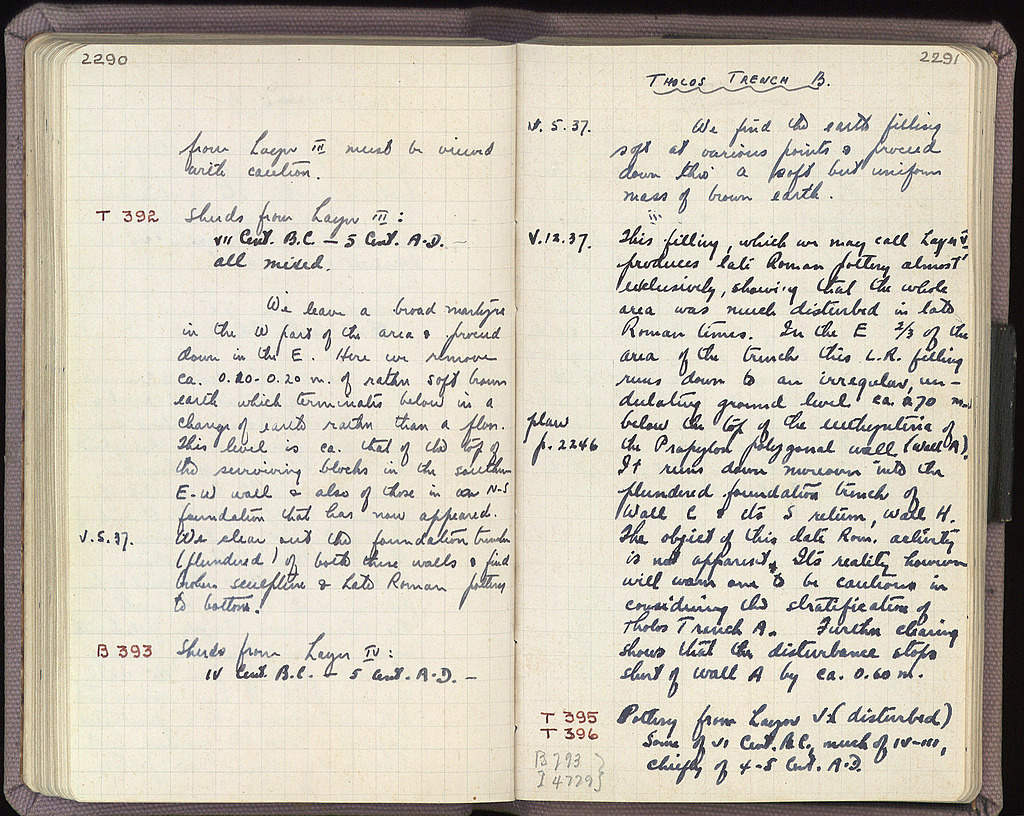 2290
from Layer III must be viewed
with caution.
T 392 Sherds from Layer III:
VII Cent. B.C. – 5 Cent. A.D. –
all mixed.
We leave a broad martyrs
in the W part of the area & proceed
down in the E. Here we remove
ca. 0.10-0.20 m. of rather soft brown
earth which terminates below in a
change of earth rather than a floor.
This level is ca. that of the top of
the surviving blocks in the southern
E-W wall & also of those in our N-S
foundation that has now appeared.
V.5.37. We clear out the foundation trenches
(plundered) of both these walls & find
broken sculpture & Late Roman pottery
to bottom.
B 393 Sherds from Layer IV:
IV Cent. B.C. – 5 Cent. A.D. –
2291
THOLOS TRENCH B.
V.5.37. We find the earth filling
soft at various points & proceed
down thro' a soft but uniform
mass of brown earth.
V.12.37. This filling, which we may call Layer V
produces late Roman pottery almost
exclusively, showing that the whole
area was much disturbed in late
Roman times. In the E 2/3 of the
area of the trench this L.R. filling
runs down to an irregular, un-
dulating ground level ca. 0.70 m.
plan below the top of the euthynteria of
p. 2246 the Propylon polygonal wall (Wall A).
It runs down moreover into the
plundered foundation trench of
Wall C & its S return, Wall H.
The object of this late Rom. activity
is not apparent. Its reality however
will warn one to be cautious in
considering the stratification of
Tholos Trench A. Further clearing
shows that the disturbance stops
short of wall A by ca. 0.60 m.
T 395 Pottery from Layer V (disturbed)
T 396 Some of VI Cent. B.C., much of IV-III,
chiefly of 4-5 Cent. A.D.
B 793
I 4729